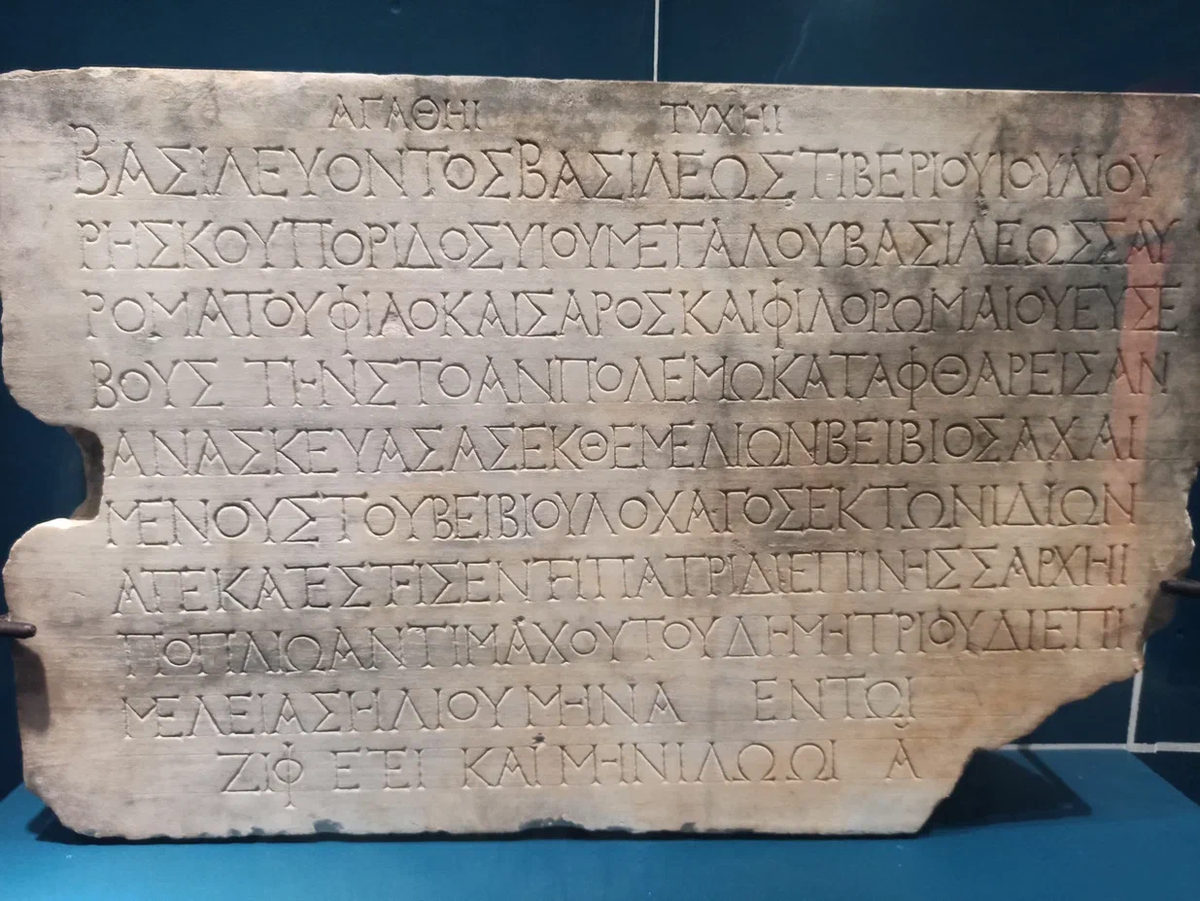 ΑΓΑΘΗΙ ΤΥΧΗΙ
ΒΑΣΙΛΕΥΟΝΤΟΣΒΑΣΙΛΕΩΣΤΙΒΕΡΙΟΥΙΟΥΛΙΟΥ
ΡΗΣΚΟΥΠΟΡΙΔΟΣΥΙΟΥΜΕΓΑΛΟΥΒΑΣΙΛΕΩΣΣΑΥ
ΡΟΜΑΤΟΥΦΙΛΟΚΑΙΣΑΡΟΣΚΑΙΦΙΛΟΡΩΜΑΙΟΥΕΥΣΕ
ΒΟΥΣ ΤΗΝΣΤΟΑΝΠΟΛΕΜΩΚΑΤΑΦΘΑΡΕΙΣΑΝ
ΑΝΑΣΚΕΥΑΣΑΣΕΚΘΕΜΕΛΙΩΝΒΕΙΒΙΟΣΑΧΑΙ
ΜΕΝΟΥΣΤΟΥΒΕΙΒΙΟΥΛΟΧΑΓΟΣΕΚΤΩΝΙΔΙΩΝ
ΑΠΕΚΑΤΕΣΤΗΣΕΝΤΗΙΠΑΤΡΙΔΙΕΠΙΝΗΣΣΑΡΧΗΙ
ΠΟΠΛΙΩΑΝΤΙΜΑΧΟΥΤΟΥΔΗΜΗΤΡΙΟΥΔΙΕΠΙ
ΜΕΛΕΙΑΣΗΛΙΟΥΜΗΝΑ ΕΝΤΩΙ
ΖΙΦ ΕΤΕΙ ΚΑΙΜΗΝΙΛΩΩΙ Α